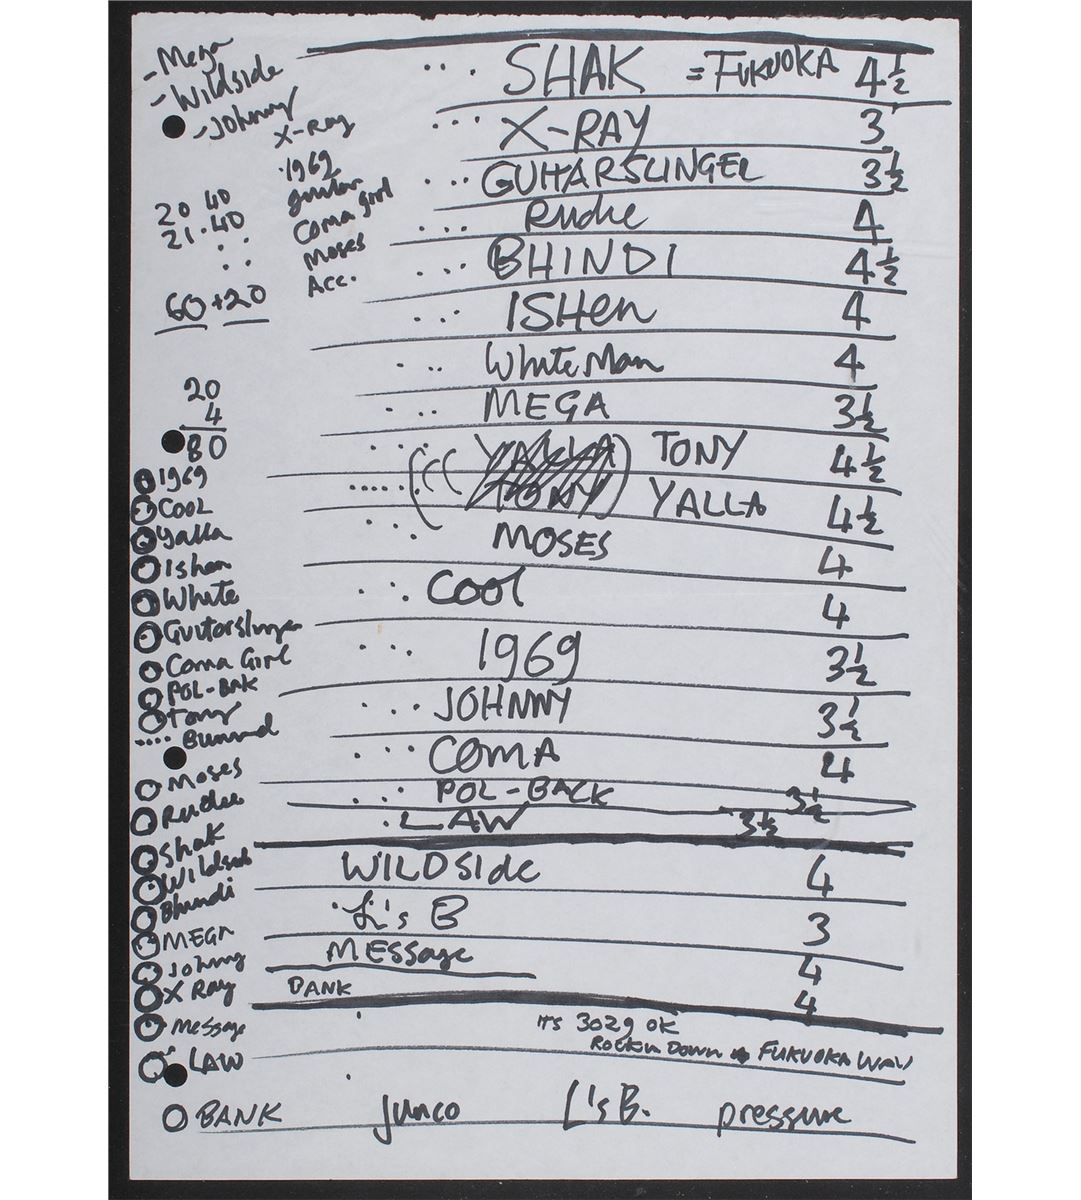 - Mega
- Wildside
- Johnny
X-Ray
1969
guitar
Coma girl
Moses
Acc.
20 40
21.40
60 + 20
20
4
80
1969
COOL
Yalla
Ishen
White
Guitarslinger
Coma Girl
POL-BAK
Tony
.... Bummed
Moses
Rudie
Shak
Wildside
Bhindi
MEGA
Johnny
X Ray
Message
LAW
... SHAK = FUKUOKA 4½
... X-RAY 3
... GUITARSLINGER 3½
... Rudie 4
... BHINDI 4½
... ISHen 4
... White Man 4
... MEGA 3½
.... (YALLA) TONY 4½
..... (TONY) YALLA 4½
... MOSES 4
... COOL 4
... 1969 3½
... JOHNNY 3½
... COMA 4
... POL-BACK 3½
. LAW 3½
WILDSIDE 4
L's B 3
MESSAGE 4
DANK 4
It's 3029 OK
Rockin Down FUKUOKA WAY
BANK junco L's B. pressure